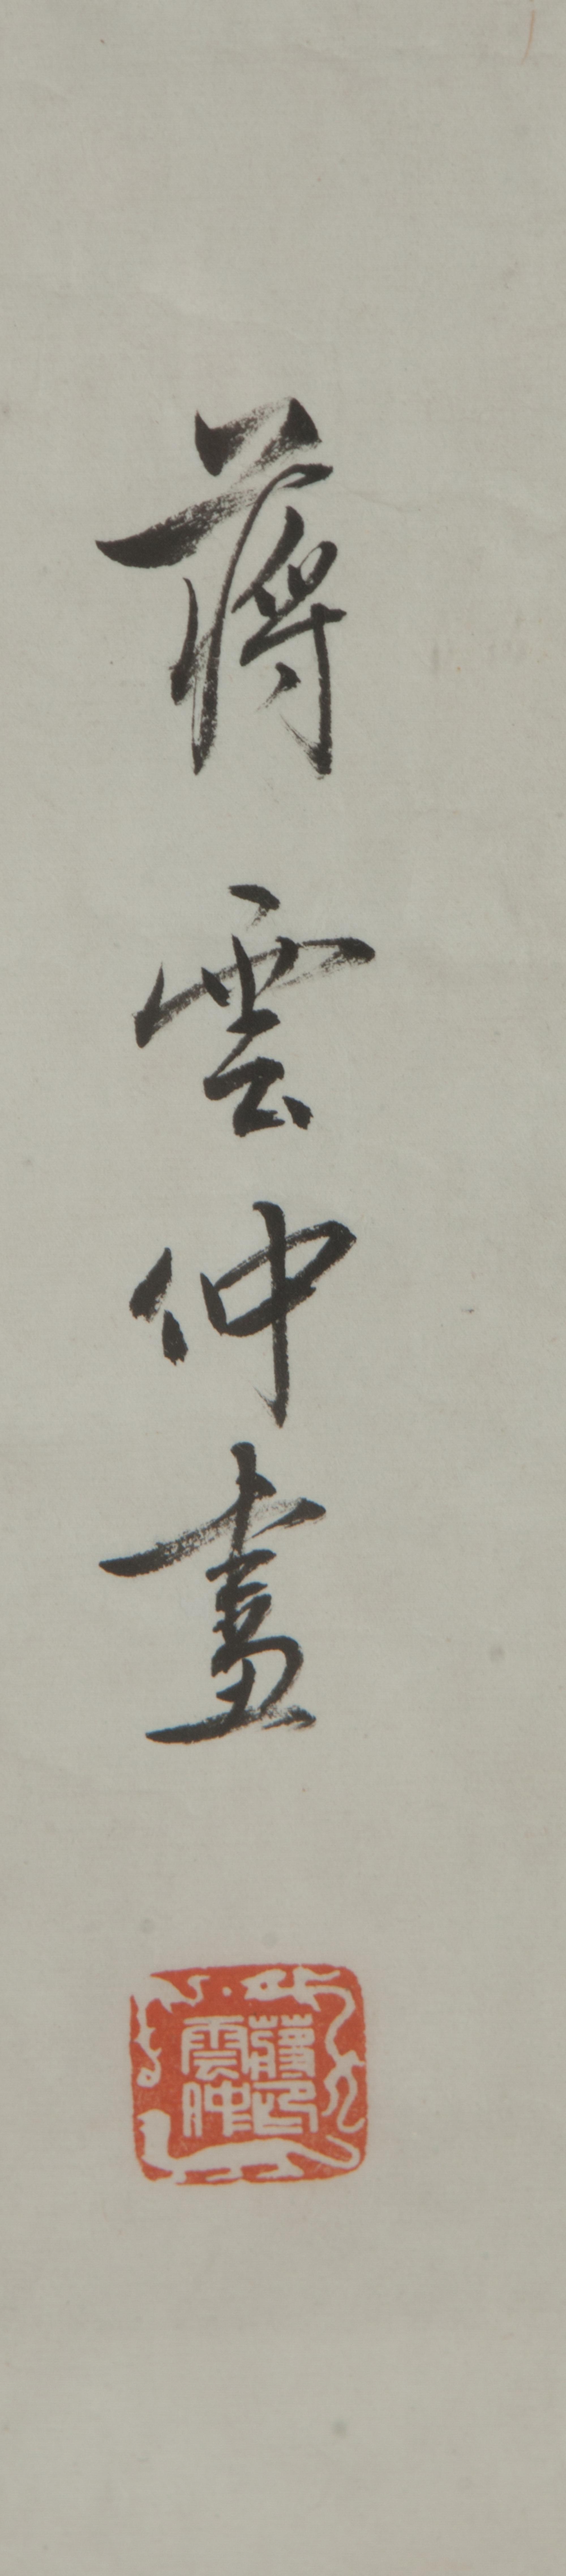 蔣雲仲畫
蔣印
雲仲